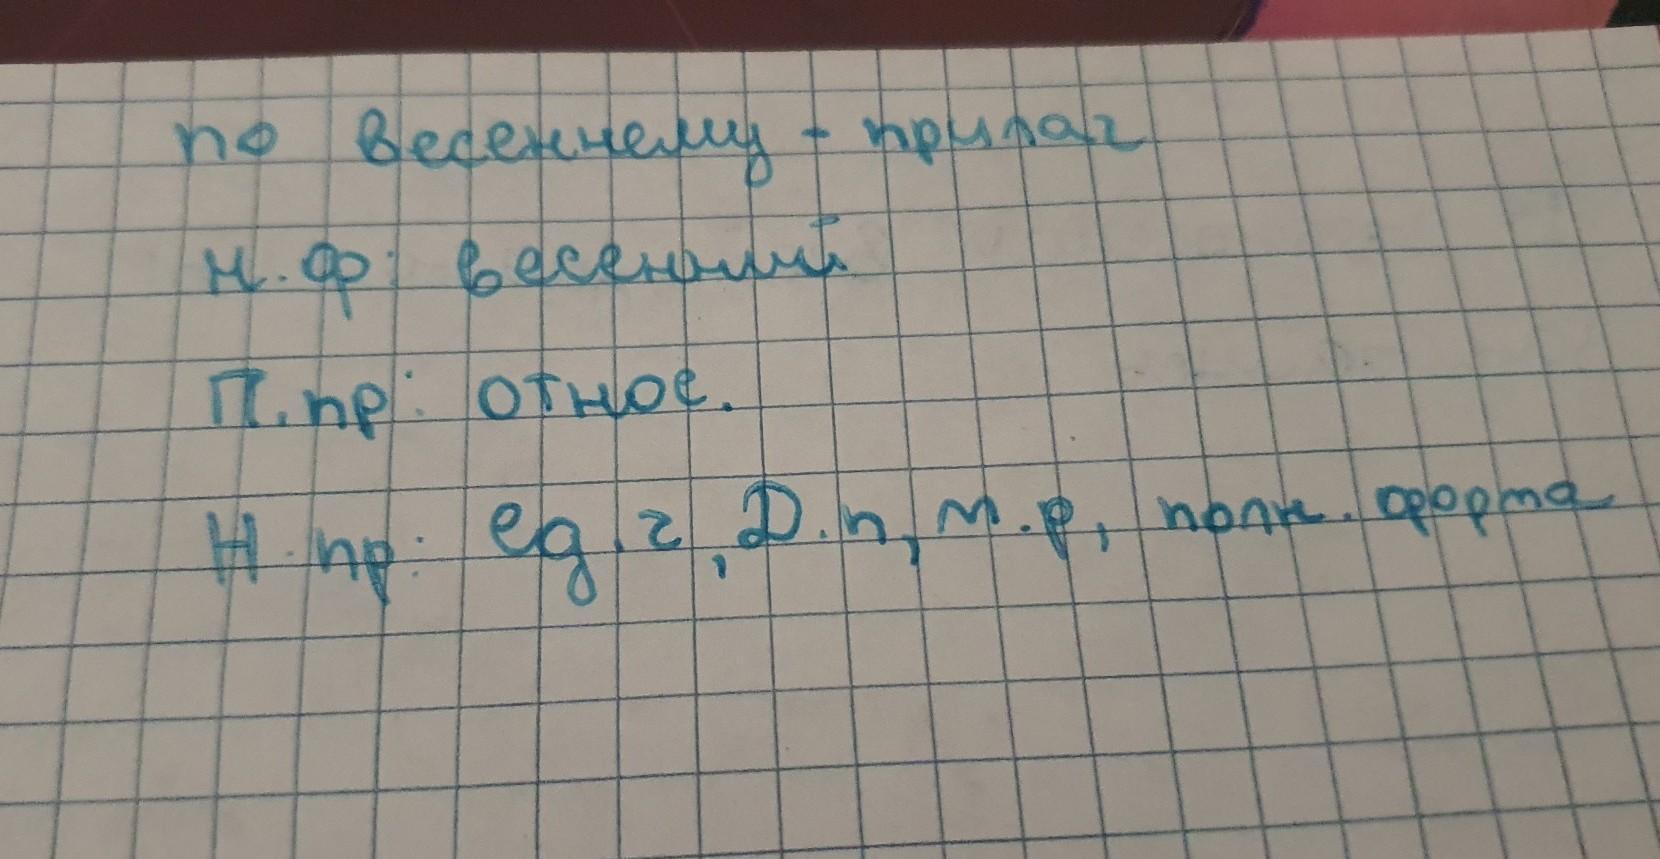 по весеннему - прилаг
н. ф: весенний
П. пр: относ.
Н. пр: ед. ч, Д. п, м. р, полн. форма